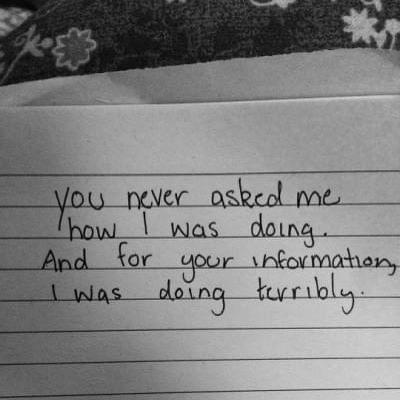 you never asked me
how I was doing.
And for your information,
I was doing terribly.